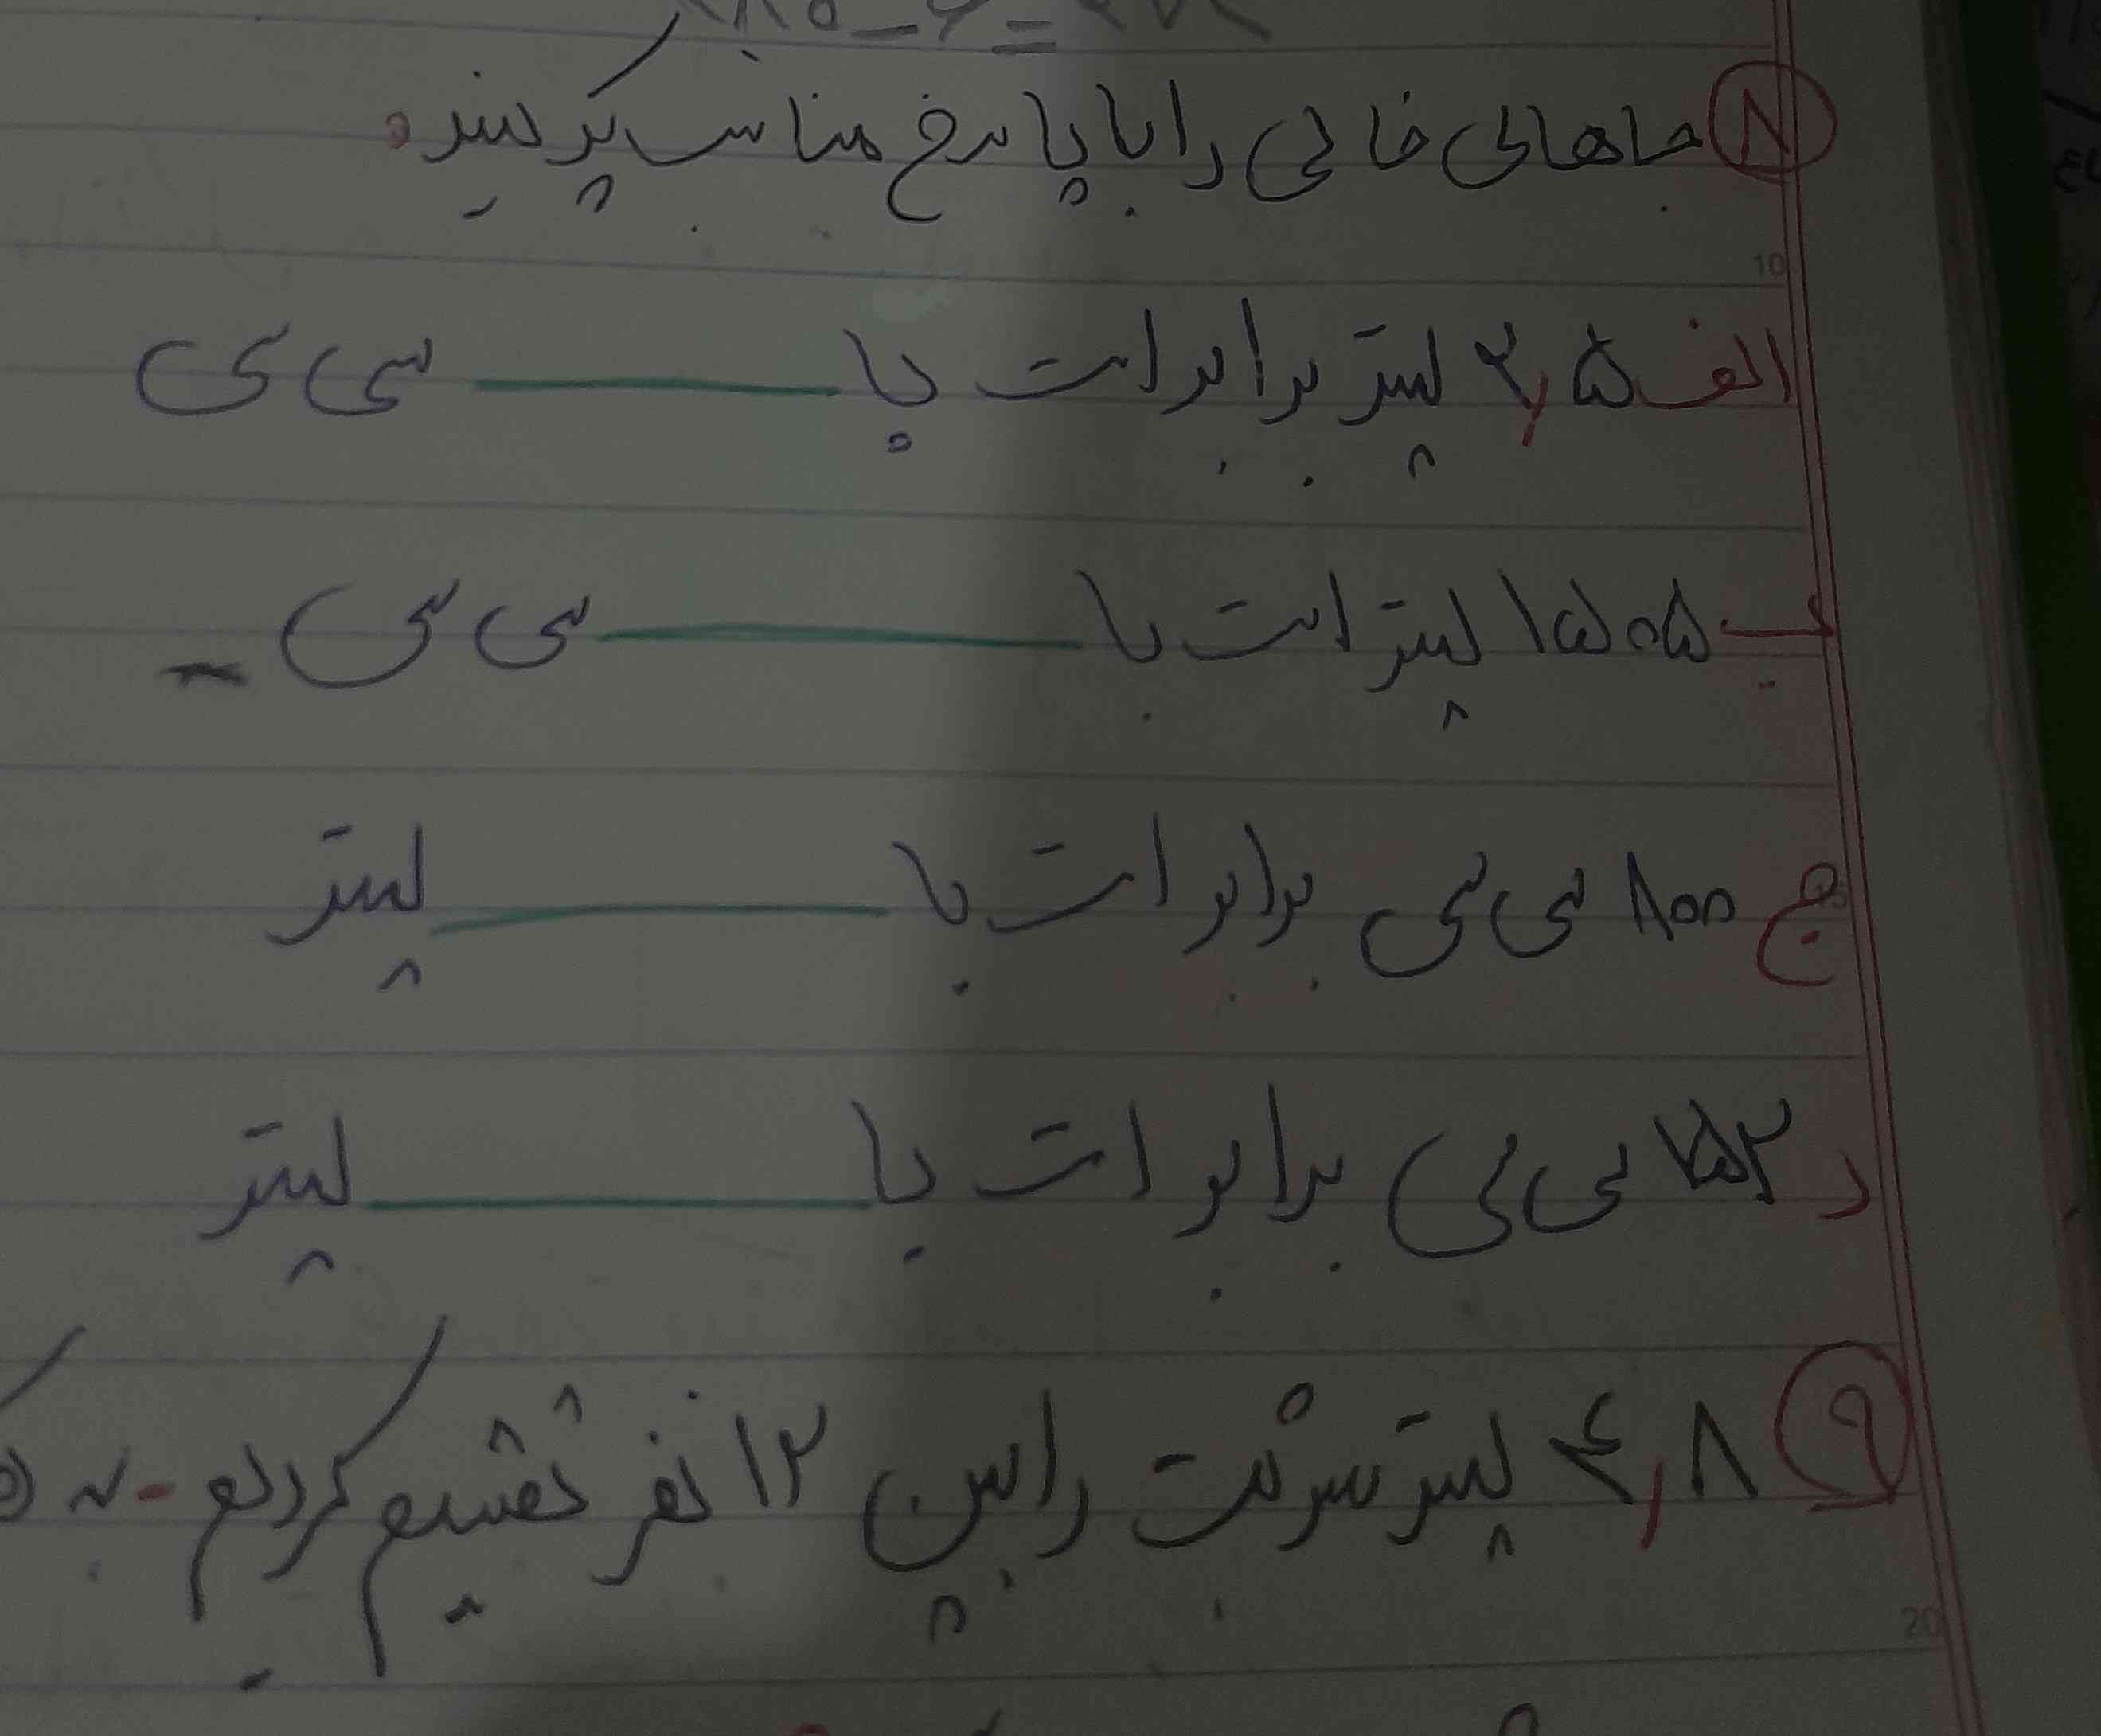 ۸ جاهای خالی را با پاسخ مناسب پر کنید.
10
الف ۲٫۵ لیتر برابر است با ــــــــــ سی سی
ب ۱۵۰۵ لیتر است با ــــــــــ سی سی
ج ۸۰۰ سی سی برابر است با ــــــــــ لیتر
د ۷۵۲ سی سی برابر است با ــــــــــ لیتر
۹ ۴٫۸ لیتر شربت را بین ۱۲ نفر تقسیم کردیم - به
20